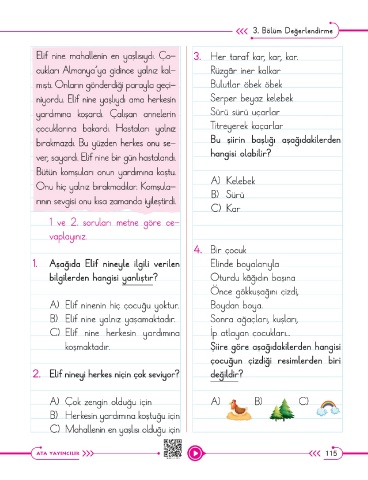 3. Bölüm Değerlendirme
Elif nine mahallenin en yaşlısıydı. Ço-
cukları Almanya'ya gidince yalnız kal-
mıştı. Onların gönderdiği parayla geçi-
niyordu. Elif nine yaşlıydı ama herkesin
yardımına koşardı. Çalışan annelerin
çocuklarına bakardı. Hastaları yalnız
bırakmazdı. Bu yüzden herkes onu se-
ver, sayardı. Elif nine bir gün hastalandı.
Bütün komşuları onun yardımına koştu.
Onu hiç yalnız bırakmadılar. Komşula-
rının sevgisi onu kısa zamanda iyileştirdi.
1 ve 2. soruları metne göre ce-
vaplayınız.
1. Aşağıda Elif nineyle ilgili verilen
bilgilerden hangisi yanlıştır?
A) Elif ninenin hiç çocuğu yoktur.
B) Elif nine yalnız yaşamaktadır.
C) Elif nine herkesin yardımına
koşmaktadır.
2. Elif nineyi herkes niçin çok seviyor?
A) Çok zengin olduğu için
B) Herkesin yardımına koştuğu için
C) Mahallenin en yaşlısı olduğu için
3. Her taraf kar, kar, kar.
Rüzgâr iner kalkar
Bulutlar öbek öbek
Serper beyaz kelebek
Sürü sürü uçarlar
Titreyerek kaçarlar
Bu şiirin başlığı aşağıdakilerden
hangisi olabilir?
A) Kelebek
B) Sürü
C) Kar
4. Bir çocuk
Elinde boyalarıyla
Oturdu kâğıdın başına
Önce gökkuşağını çizdi,
Boydan boya.
Sonra ağaçları, kuşları,
İp atlayan çocukları...
Şiire göre aşağıdakilerden hangisi
çocuğun çizdiği resimlerden biri
değildir?
A) B) C)
ATA YAYINCILIK
115